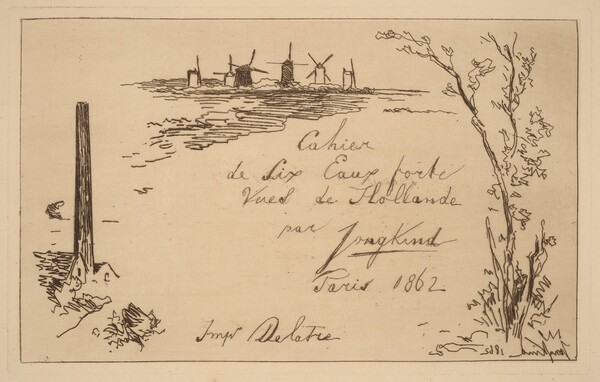 Cahier
de Six Eaux forte
Vues de Hollande
par Jongkind
Paris 1862
Impr Delatre
Jongkind 1862